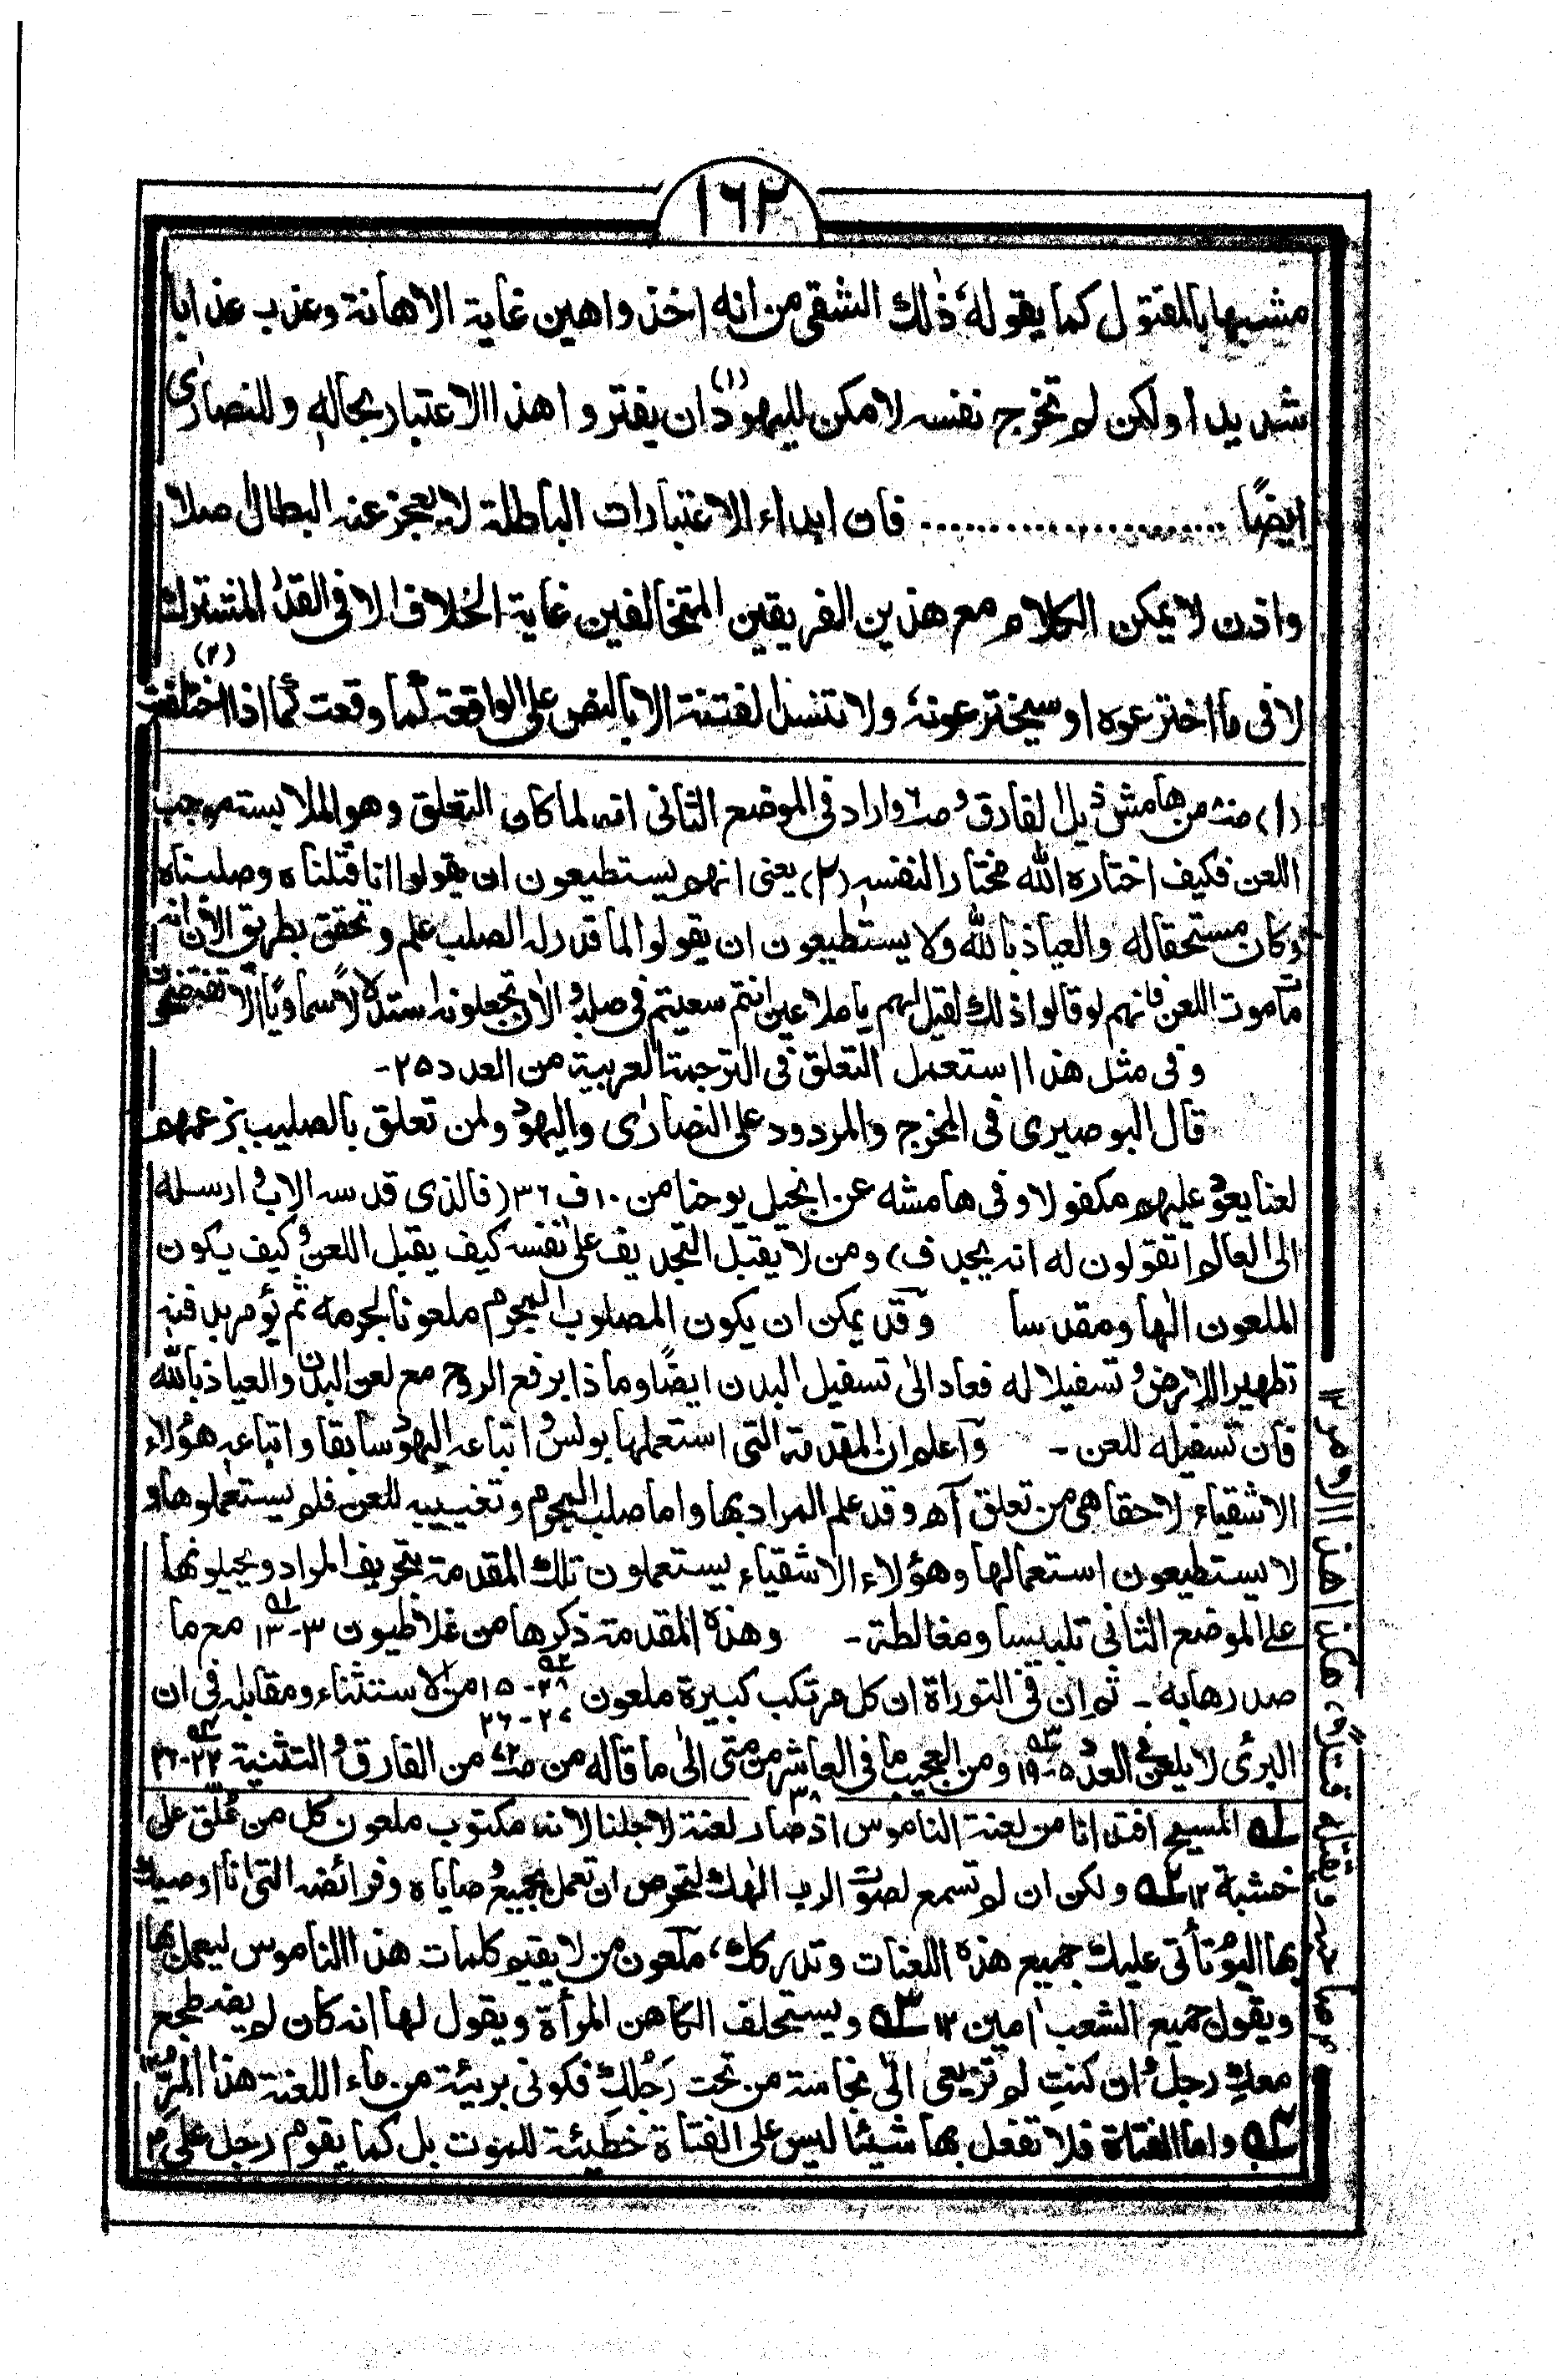 ١٦٢
مشبها بالمقتول كما يقوله ذٰلك الشقى من انه اخذ واهين غاية الاهانة وعذب عذابا
شديدا ولكن لم تخرج نفسه لا مكن لليهود(١) ان يفتروا هذا الاعتبار بحاله وللنصارٰى
ايضًا ........................ فان ابداء الاعتبارات الباطلة لا يعجز عنه البطال اصلا
واذن لا يمكن الكلام مع هذين الفريقين المتخالفين غاية الخلاف الا فى القدر المشترك
لا فى ما اخترعوه او سيخترعونه ولا تنسد الفتنة الا بالنص على الواقعة كما وقعت كما اذا اختلفت(٢)
(١) من هامش ذيل الفارق و واراد فى الموضع الثانى انه لما كان التعلق وهو الملابسته موجب
اللعن فكيف اختاره الله مختارا لنفسه (٢) يعنى انهم يستطيعون ان يقولوا انا قتلناه وصلبناه
وكان مستحقاله والعياذ بالله ولا يستطيعون ان يقولوا لما قدر له الصلب علم وتحقق بطريق الان انه
مات موت اللعن فانهم لو قالوا ذلك لقيل لهم يا ملاعين انتم سعيتم فى صلبه والاٰن تجعلونه استدلالًا سماويًا الا تفتضحون
وفى مثل هذا استعمل التعلق فى الترجمة العربية من العدد ٢٥-
قال البوصيرى فى المخرج والمردود على النصارٰى واليهود ولمن تعلق بالصليب بزعمهم
لعنا يعود عليهم مكفولا وفى هامشه عن انجيل يوحنا من ١٠ ف ٣٦ (فالذى قدسه الاب وارسله
الى العالم اتقولون له انه يجدف) ومن لا يقبل التجديف على نفسه كيف يقبل اللعن وكيف يكون
الملعون الٰها ومقدسا وقد يمكن ان يكون المصلوب المجرم ملعونا لجرمه ثم يؤمر بدفنه
تطهيرا للارض وتسفيلا له فعاد الىٰ تسفيل البدن ايضًا وماذا يرفع الروح مع لعن البدن والعياذ بالله
فان تسفيله للعن - واعلم ان المقدمة التى استعملها بولس واتباعه اليهود سابقا واتباعه هؤلاء
الاشقياء لاحقا هى من تعلق آه وقد علم المراد بها واما صلب المجرم وتغييبه للعن فلم يستعملوها و
لا يستطيعون استعمالها وهؤلاء الاشقياء يستعملون تلك المقدمة بتحريف المراد ويحيلونها
على الموضع الثانى تلبيسا ومغالطة - وهذه المقدمة ذكرها من غلاطيون ٣-١٣ ؁١ مع ما
صدرها به - ثم ان فى التوراة ان كل مرتكب كبيرة ملعون ٢٨-١٥ ؁٢ ٢٧-٢٦ من الاستثناء ومقابله فى ان
البرئ لا يلعن فى العدد ٥-١٩ ؁٣ ومن العجيب ما فى العاشر من متى ٣٨ الٰى ما قاله من من الفارق والتثنية ٢٢-٢٦ ؁٤
؁١ المسيح افتدانا من لعنة الناموس اذ صار لعنة لاجلنا لانه مكتوب ملعون كل من عُلّق على
خشبة ١٢ ؁٢ ولكن ان لم تسمع لصوت الرب الٰهك لتحرص ان تعمل بجميع وصاياه وفرائضه التى انا اوصيك
بها اليوم تأتى عليك جميع هذه اللعنات وتدركك، ملعون من لا يقيم كلمات هذا الناموس ليعمل بها
ويقول جميع الشعب اٰمين ١٢ ؁٣ ويستحلف الكاهن المرأة ويقول لها انه كان لم يضطجع
معكِ رجل وان كنتِ لم تزيعى الى نجاسة من تحت رَجُلكِ فكونى بريئة من ماء اللعنة هذا المُرّ ١٢
؁٤ واما الفتاة فلا تفعل بها شيئا ليس على الفتاة خطيئة للموت بل كما يقوم رجل على
صاحبه ويقتله قتلاً، هكذا هذا الامر ١٢